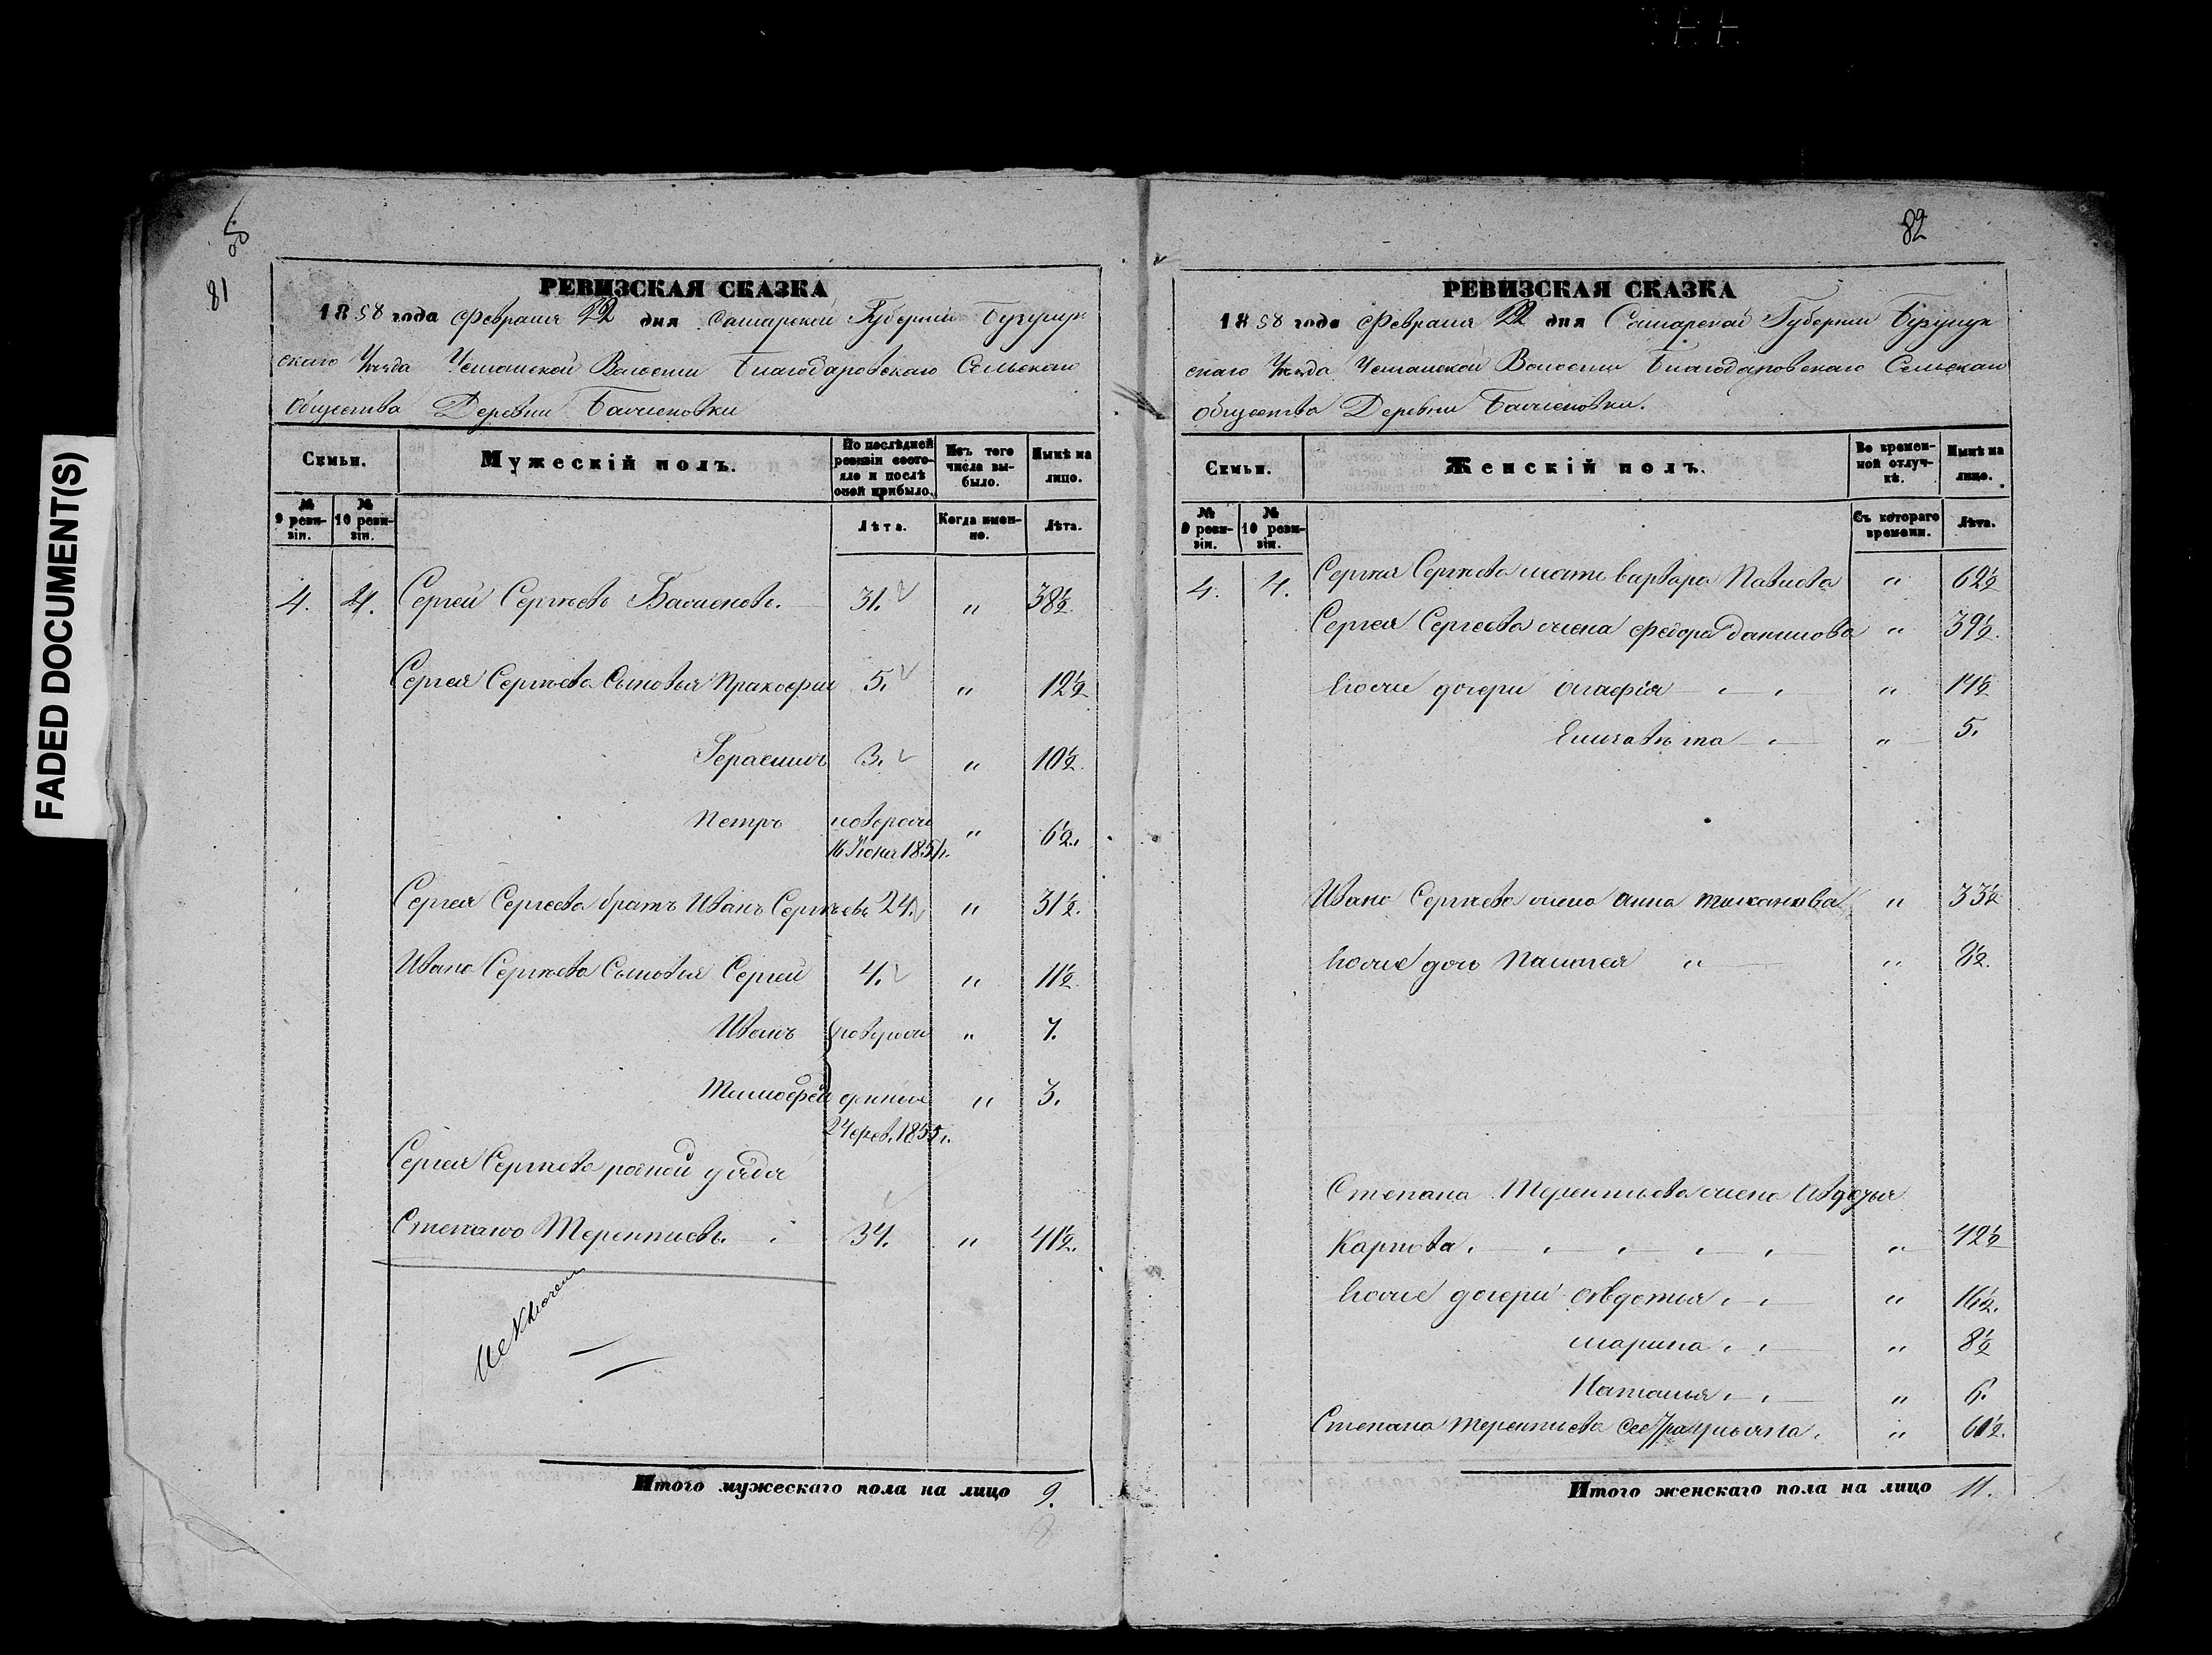 FADED DOCUMENT(S)
81
РЕВИЗСКАЯ СКАЗКА
1858 года Февраля 22 дня Самарской Губернии Бузулук
скаго Уѣзда Волости Благодаровскаго Сельскаго
общества Деревни Баженовки
Семьи.
Мужескій полъ.
По послѣдней ревизіи состояло и послѣ оной прибыло.
Изъ того числа выбыло.
Нынѣ на лицо.
№ 9 ревизіи.
№ 10 ревизіи.
Лѣта.
Когда именно.
Лѣта.
4. 4. Сергей Сергѣевъ Баженовъ. 31. " 38½
Сергея Сергѣева сыновья Пракофий 5. " 12½
Герасимъ 3. " 10½
Петръ новорож 16 Июня 1851г. " 6½.
Сергея Сергеева братъ Иванъ Сергѣевъ 24. " 31½.
Ивана Сергѣева Сыновья Сергей 4. " 11½
Иванъ " 7.
Тимофей 1855г. " 3.
Сергея Сергѣева родной дядя
Степанъ Терентиевъ. 34. " 41½.
Итого мужескаго пола на лицо 9.
82
РЕВИЗСКАЯ СКАЗКА
1858 года Февраля 22 дня Самарской Губернии Бузулук
скаго Уѣзда Волости Благодаровскаго Сельскаго
общества Деревни Баженовки.
Семьи.
Женскій полъ.
Во временной отлучкѣ.
Нынѣ на лицо.
№ 9 ревизіи.
№ 10 ревизіи.
Съ котораго времени.
Лѣта.
4. 4. Сергея Сергѣева мать варвара Павлова " 62½
Сергея Сергеева жена федора данилова " 39½.
дочери агафія " 14½
Елизавѣта " 5.
Ивана Сергѣева жена анна " 33½
дочь Палагея " " 8½.
Степана Терентьева жена Авдотья
Карпова " 42½
дочери авдотья " 16½.
марина " 8½
Наталья " 6.
Степана терентьева сестра ульяна. " 61½.
Итого женскаго пола на лицо 11.